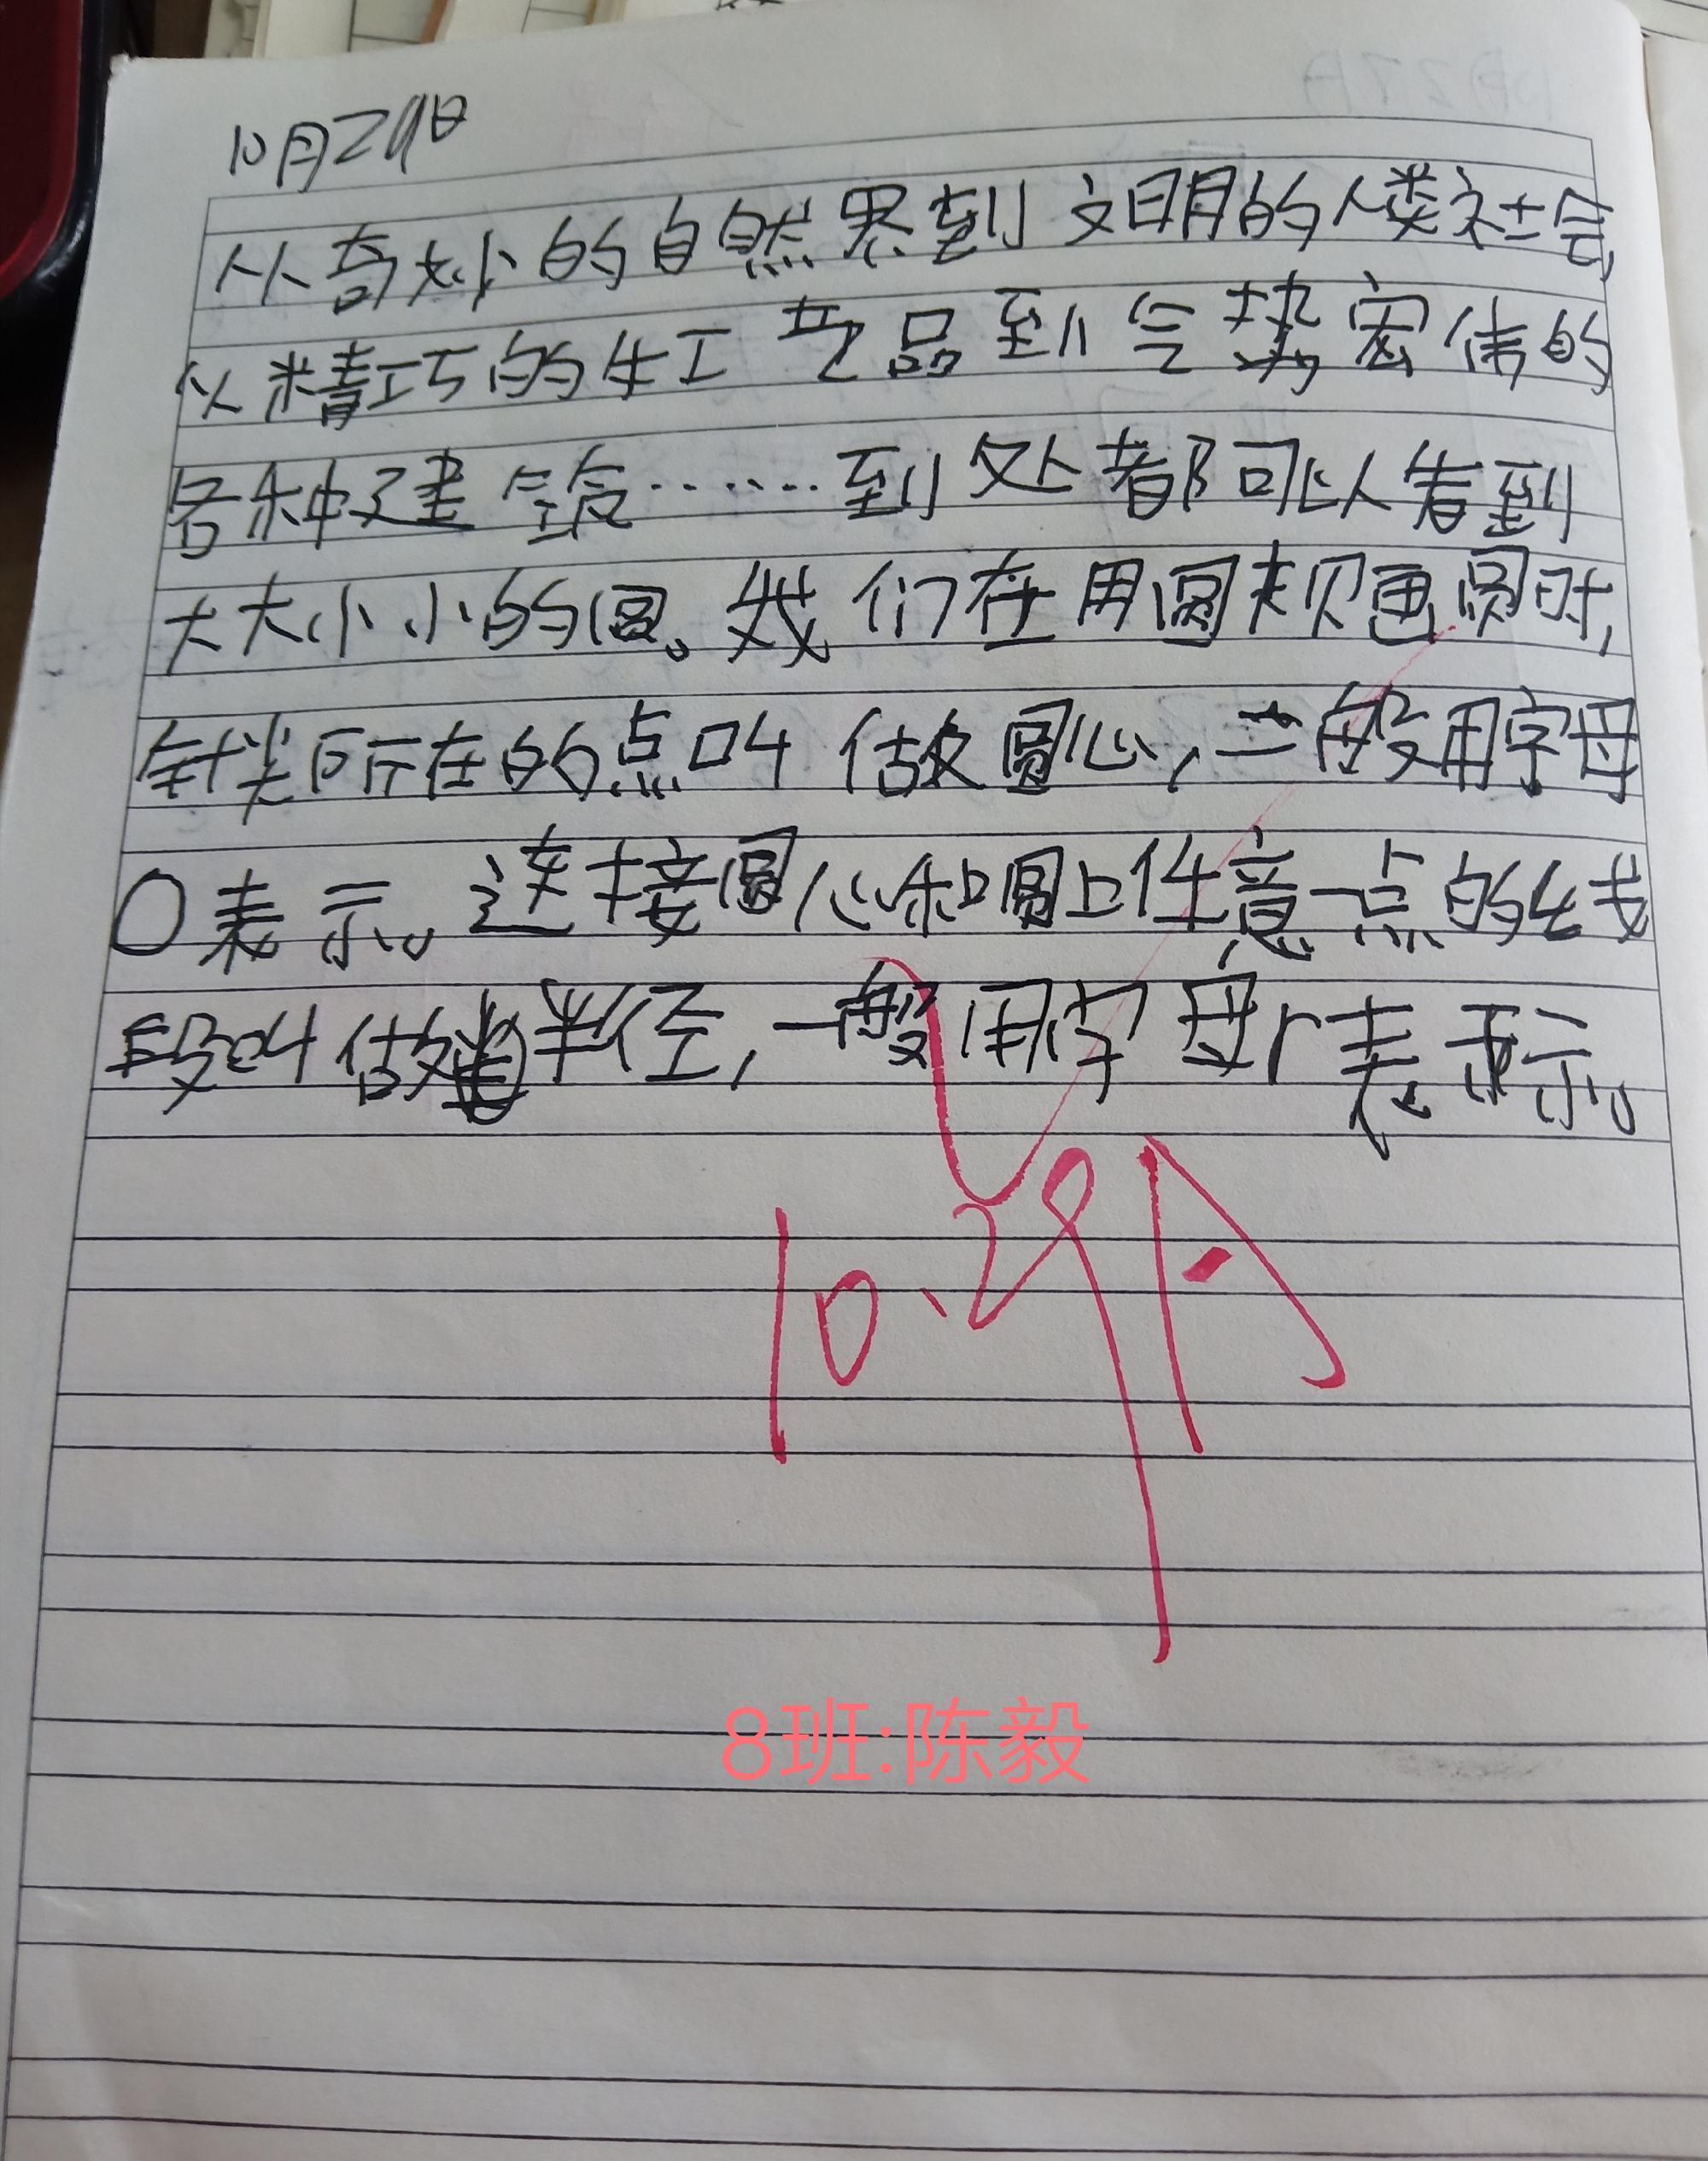 10月29日
从奇妙的自然界到文明的人类社会,
从精巧的手工艺品到气势宏伟的
各种建筑……到处都可以看到
大大小小的圆。我们在用圆规画圆时,
针尖所在的点叫做圆心,一般用字母
O表示。连接圆心和圆上任意一点的线
段叫做半径,一般用字母r表示。
10.29 A
8班:陈毅